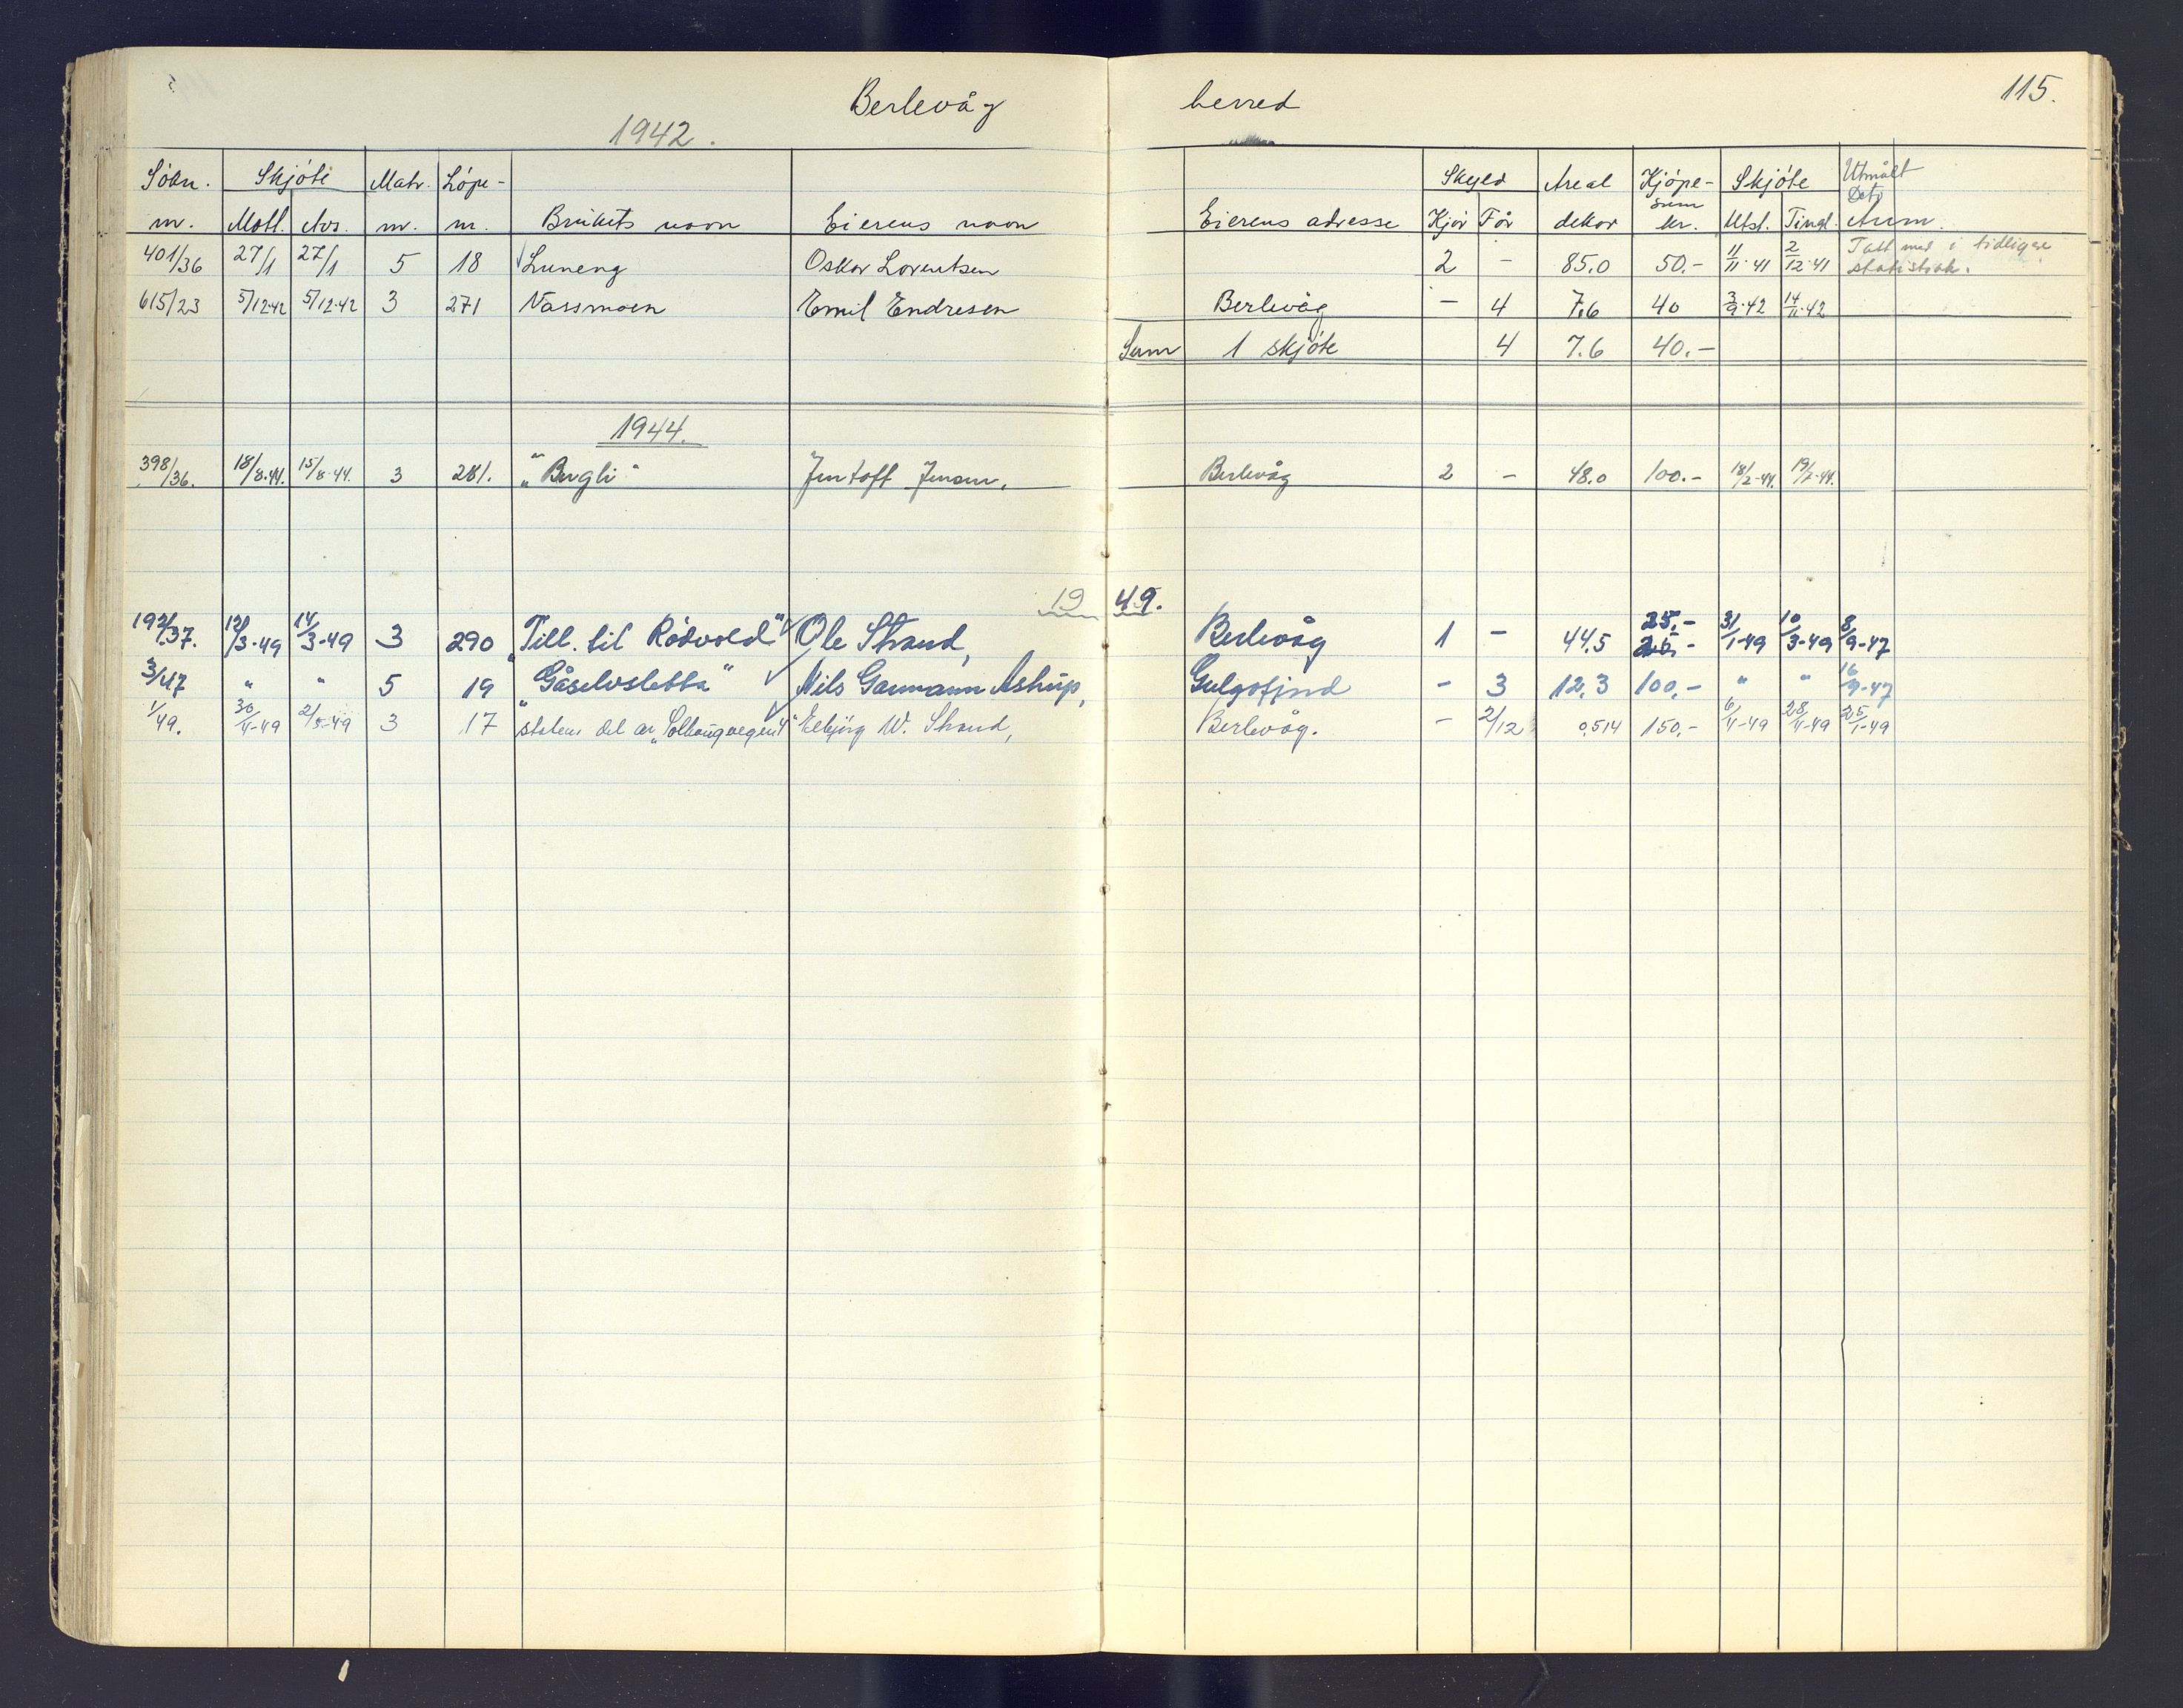 Berlevåg herred 115.
1942.
Søkn. Skjøte Matr. Løpe- Skyld Areal Kjøpe- Skjøte Utmålt
nr. Mott. Avs. nr. nr. Brukets navn Eierens navn Eierens adresse Kjør Får dekar sum kr. Utst. Tingl. Dato Anm.
401/36 27/1 27/1 5 18 Luneng Oskar Lorentsen 2 - 85.0 50.- 11/11-41 2/12-41 Tatt med i tidligere
statistikk.
615/23 5/12-42 5/12-42 3 271 Nassmoen Emil Endresen Berlevåg - 4 7.6 40 3/9-42 14/11-42
Sum 1 skjøte 4 7.6 40.-
1944.
398/36. 18/8-44. 15/8-44. 3 281. "Bergli" Jentoft Jensen. Berlevåg 2 - 48.0 100.- 18/2-44. 19/7-44.
1949.
192/37. 12/3-49 14/3-49 3 290 "Till. til Rödvold" Ole Strand, Berlevåg 1 - 44,5 25.- 31/1-49 10/3-49 8/9-47
25.-
3/47 " " 5 19 "Gåselvsletta" Nils Gaumann Astrup, Gulgofjord - 3 12,3 100,- " " 16/9-47
1/49. 30/4-49 2/5-49 3 17 statens del av "Solhaugvegen 4" Eebjörg W. Strand, Berlevåg. - 2/12 0,514 150,- 6/4-49 28/4-49 25/1-49